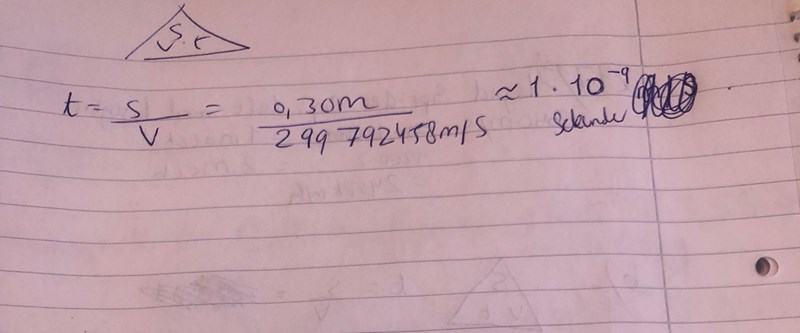 S. t
t = S/V = 0,30m / 299 792458m/s ≈ 1 · 10⁻⁹
Sekunder